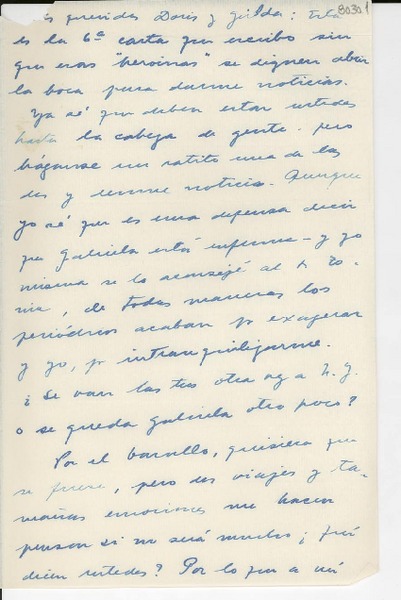 8030 1
s queridas Doris y Gilda: Esta
es la 6ª carta que escribo sin
que esas "heroinas" se dignen abrir
la boca para darme noticias.
Ya sé que deben estar ustedes
hasta la cabeza de gente, pero
háganse un ratito una de las
dos y denme noticias. Aunque
yo sé que es una defensa decir
que Gabriela está enferma - y yo
misma se lo aconsejé al
de todas maneras los
periódicos acaban p exagerar
y yo, p intranquilizarme.
¿Se van las tres otra vez a N. Y.
o se queda Gabriela otro poco?
Por el barullo, quisiera que
se fuese, pero los viajes y ta-
mañas emociones me hacen
pensar si no será mucho; ¿qué
dicen ustedes? Por lo que a mí